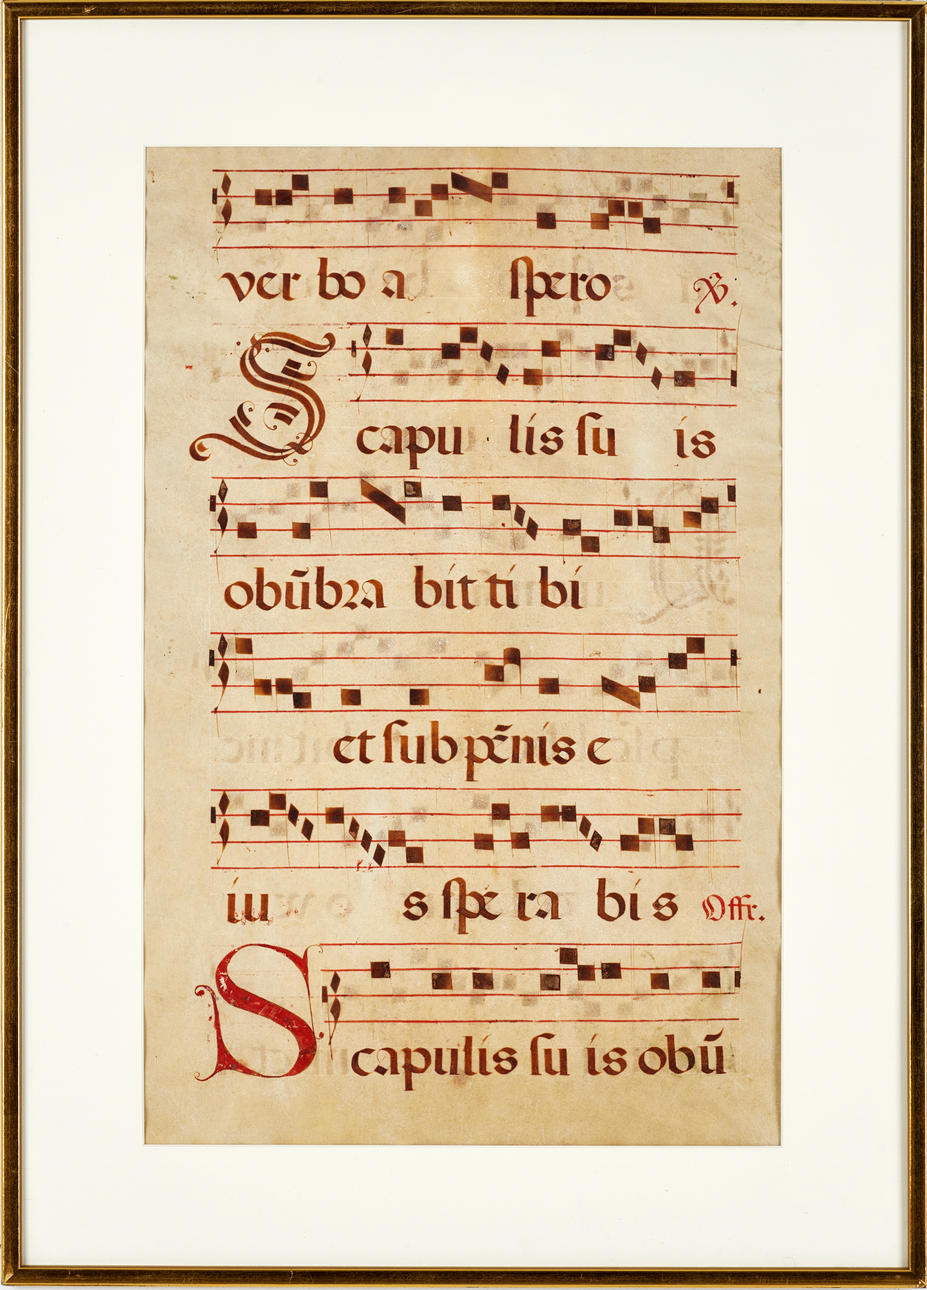 ver bo a spero ỹ.
Scapu lis su is
obũbra bit ti bi
et sub pẽnis e
iu s spe ra bis Offr.
Scapulis su is obũ